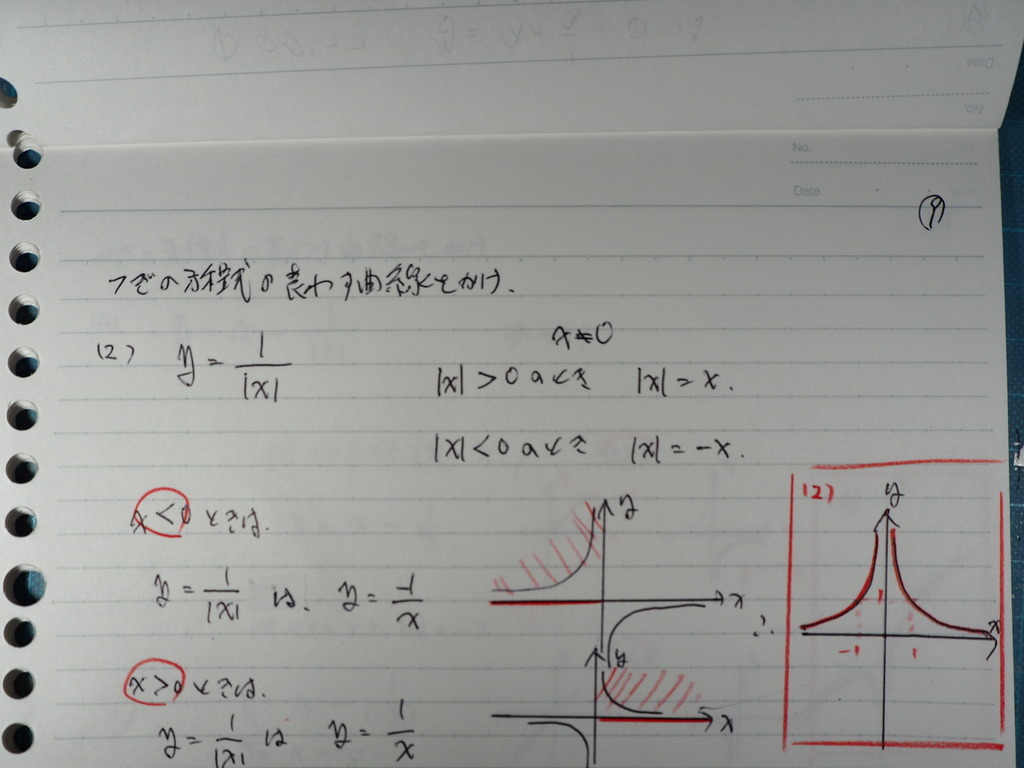 No.
Date
⑨
つぎの方程式の表わす曲線をかけ.
(2) y = 1/|x|
x≠0
|x|>0のとき |x|=x.
|x|<0のとき |x|=-x.
x<0 ときは.
y = 1/|x| は. y = -1/x
y
x
x>0 ときは.
y = 1/|x| は y = 1/x
y
x
∴
(2)
y
x
1
-1
1